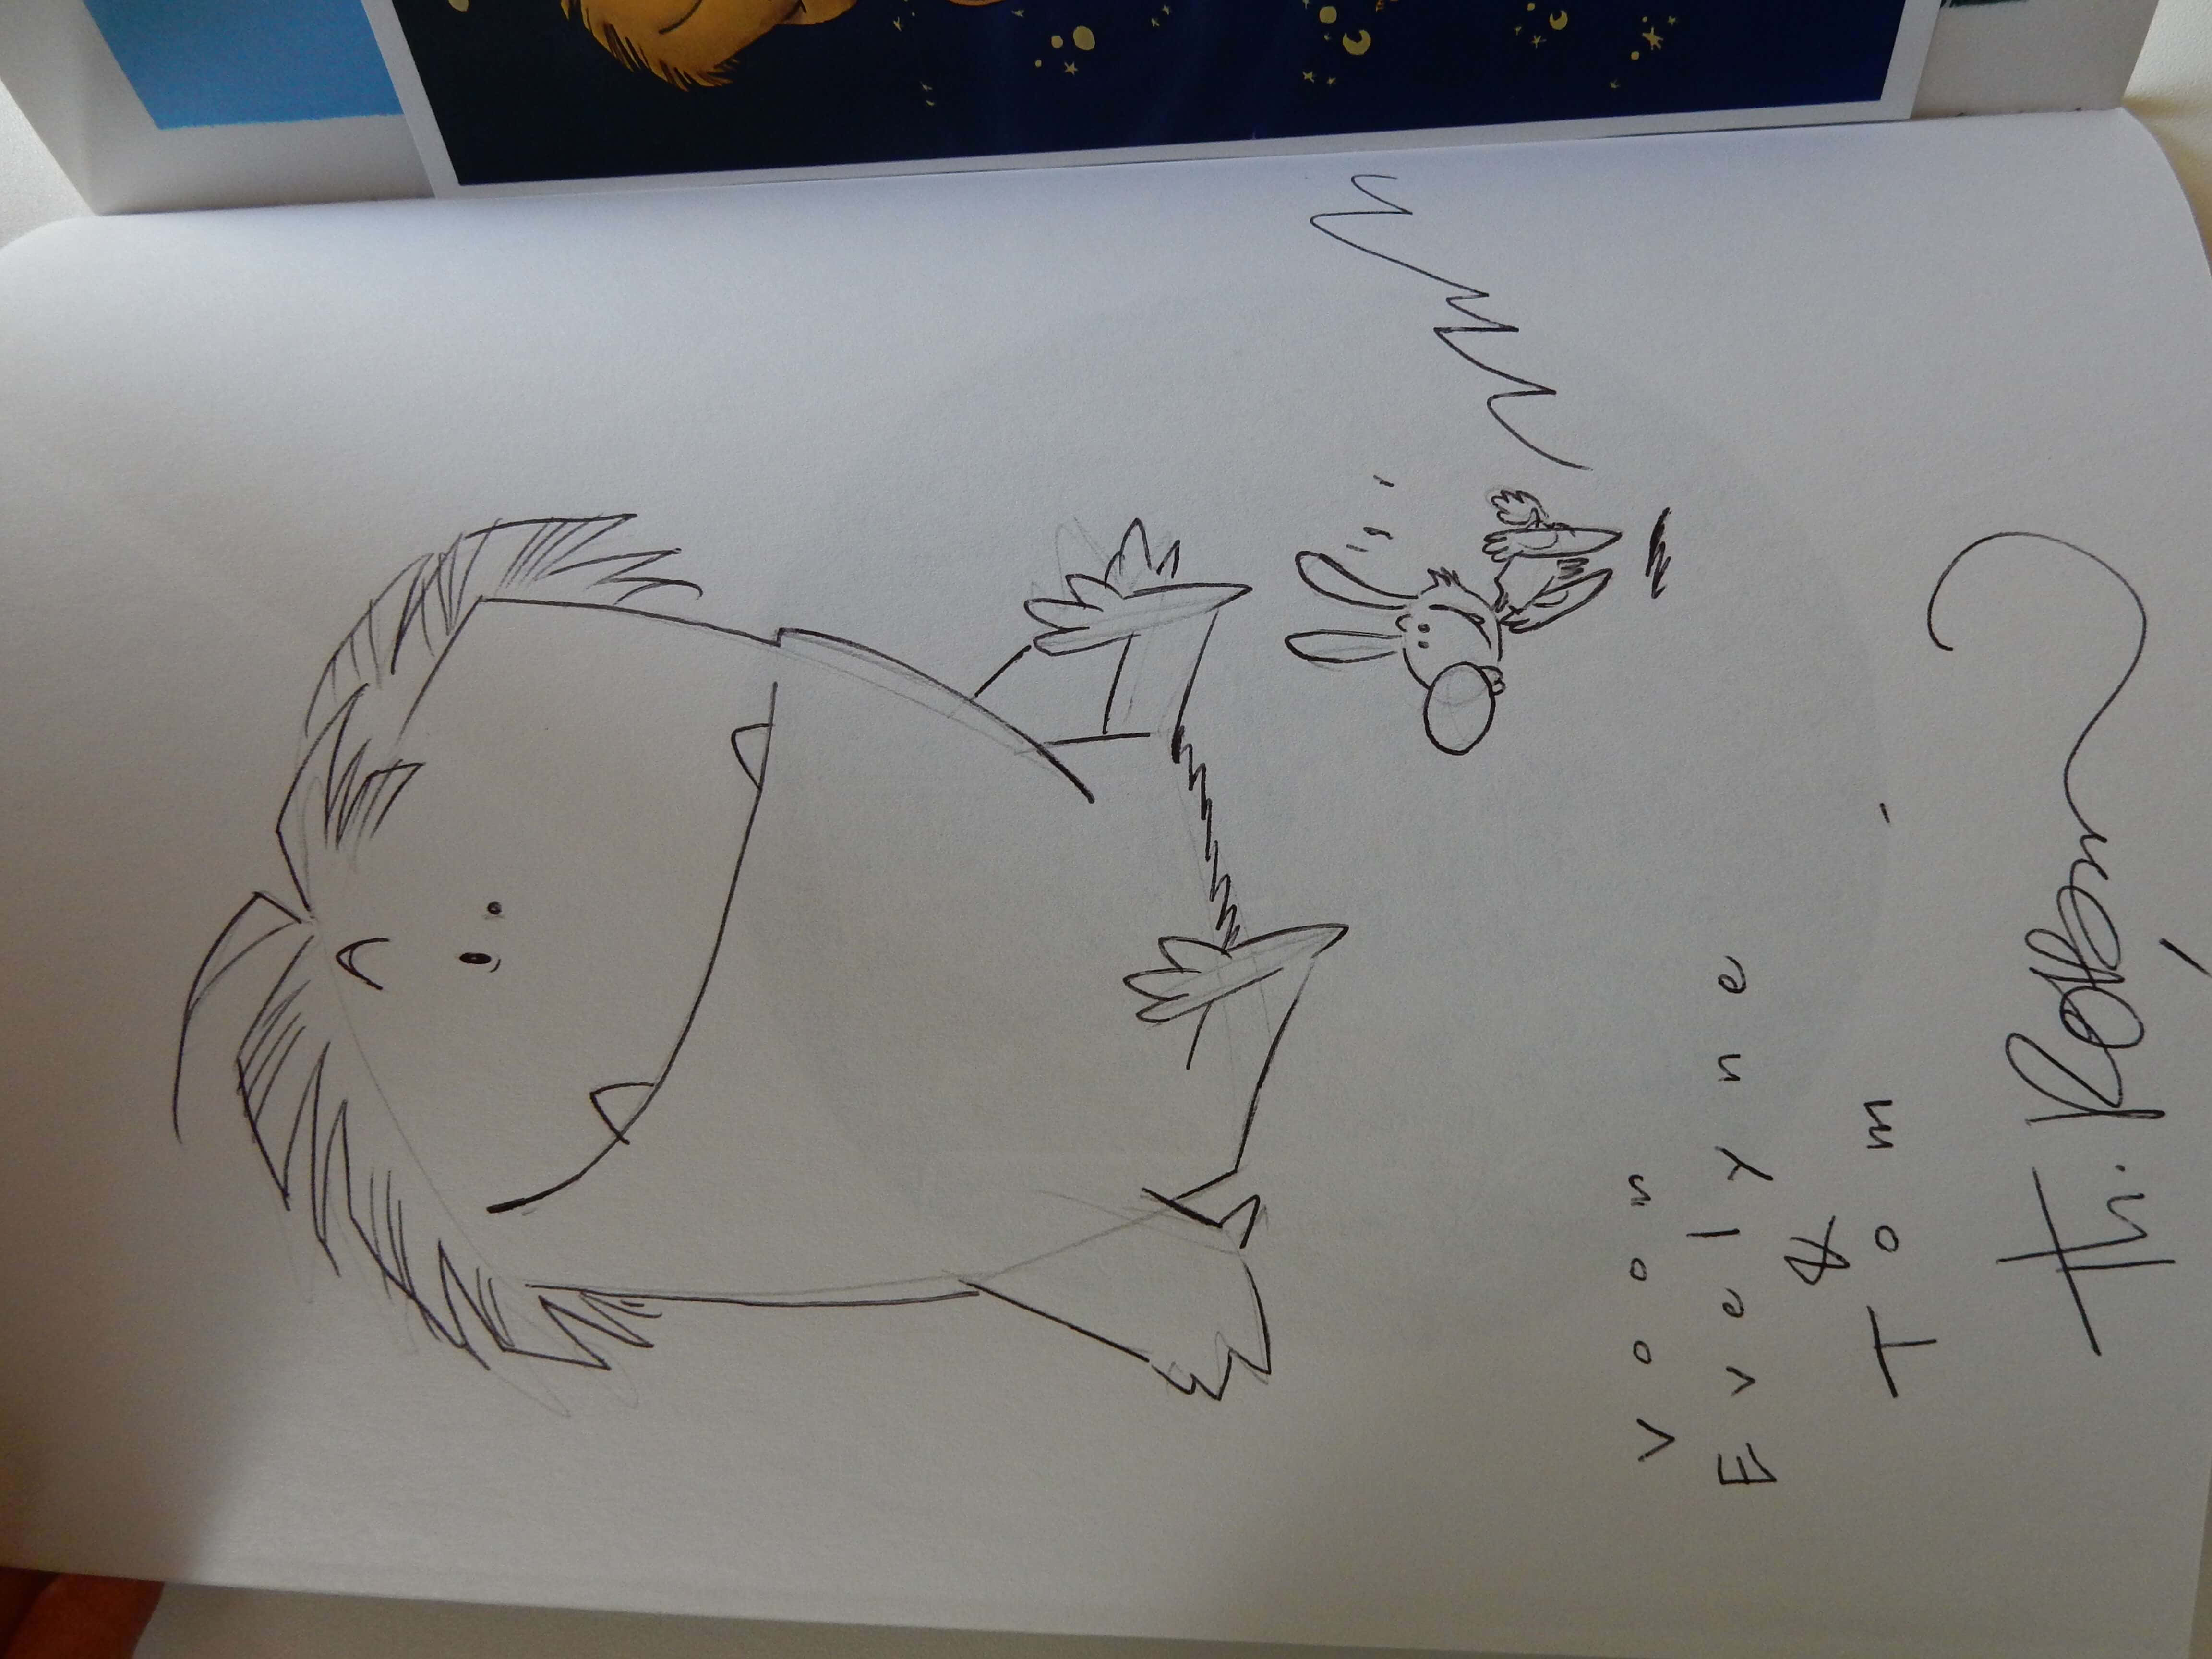 voor
Evelyne
&
Tom
Th. Robin